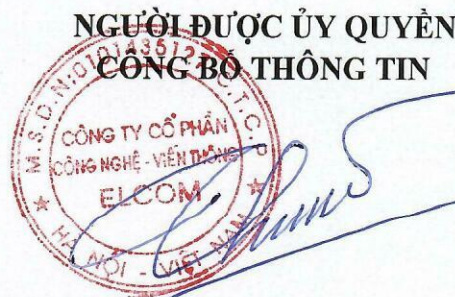 NGƯỜI ĐƯỢC ỦY QUYỀN
CÔNG BỐ THÔNG TIN
M.S.D.N:0101435127-C.T.C.P
CÔNG TY CỔ PHẦN
CÔNG NGHỆ - VIỄN THÔNG
ELCOM
HÀ NỘI - VIỆT NAM